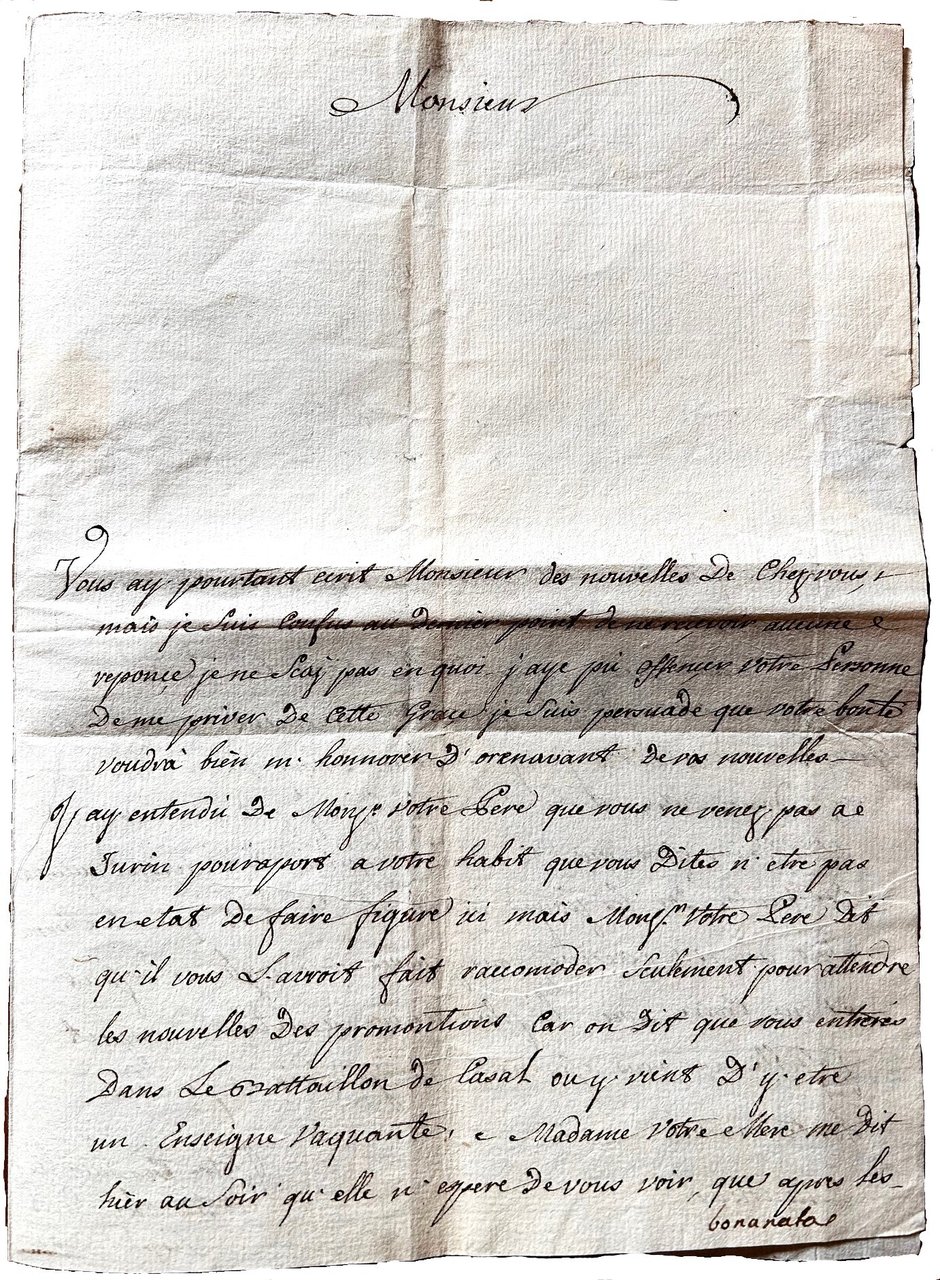 Monsieur
Vous ay pourtant ecrit Monsieur des nouvelles De Chez vous,
mais je Suis Confus au Dernier point de ne reçevoir aucune
reponçe je ne Scaj pas en quoi j'aye pû offençer votre Personne
De me priver De Cette Grace je Suis persuade que votre bonté
voudrà bièn m'honnorer D'orenavant de vos nouvelles
J'ay entendû De Monsr. votre Pere que vous ne venez pas a
Turin pouraport a votre habit que vous Dites n'etre pas
en etat De faire figure ici mais Monsr. Votre Pere Dit
qu'il vous L'avroit fait raccomoder Seulement pour attendre
les nouvelles Des promontions Car on Dit que vous entrerés
Dans Le Battaillon de Casal ou y vient D'y etre
un Enseigne Vaquante, e Madame Votre Mere me Dit
hièr au Soir qu'elle n'espere De vous voir, que apres les
bonanata